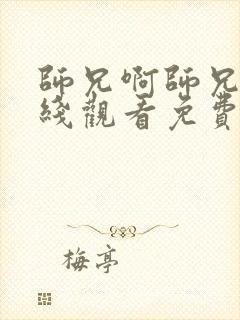 師兄啊師兄
綫觀看免費
梅亭